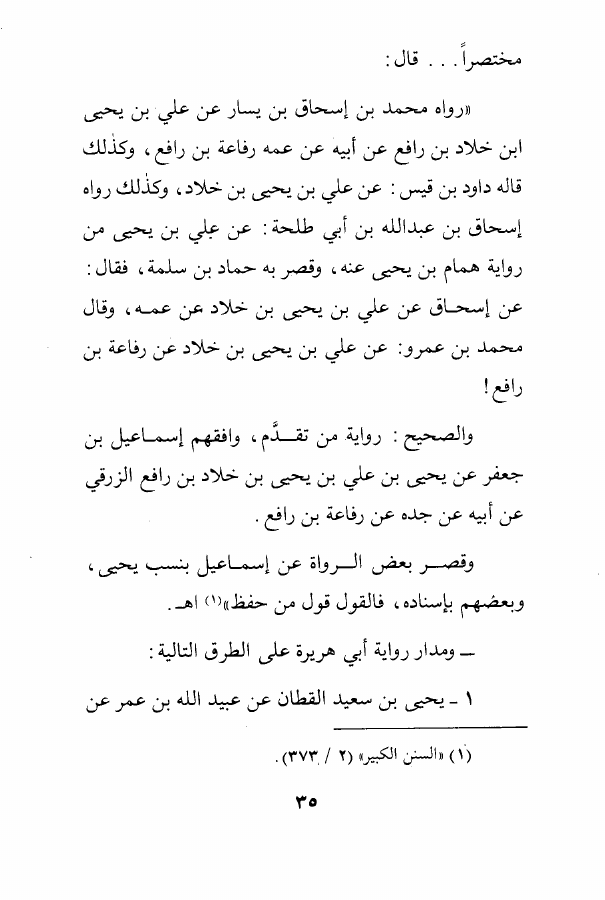 مختصراً . . . قال :
«رواه محمد بن إسحاق بن يسار عن علي بن يحيى
ابن خلاد بن رافع عن أبيه عن عمه رفاعة بن رافع ، وكذلك
قاله داود بن قيس : عن علي بن يحيى بن خلاد ، وكذلك رواه
إسحاق بن عبدالله بن أبي طلحة : عن علي بن يحيى من
رواية همام بن يحيى عنه ، وقصر به حماد بن سلمة ، فقال :
عن إسحـاق عن علي بن يحيى بن خلاد عن عمـه ، وقال
محمد بن عمرو : عن علي بن يحيى بن خلاد عن رفاعة بن
رافع !
والصحيح : رواية من تقـدَّم ، وافقهم إسمـاعيل بن
جعفر عن يحيى بن علي بن يحيى بن خلاد بن رافع الزرقي
عن أبيه عن جده عن رفاعة بن رافع .
وقصـر بعض الـرواة عن إسمـاعيل بنسب يحيى ،
وبعضهم بإسناده ، فالقول قول من حفظ»(١) اهـ .
ــ ومدار رواية أبي هريرة على الطرق التالية :
١ ـ يحيى بن سعيد القطان عن عبيد الله بن عمر عن
(١) «السنن الكبير» (٢ / ٣٧٣) .
٣٥